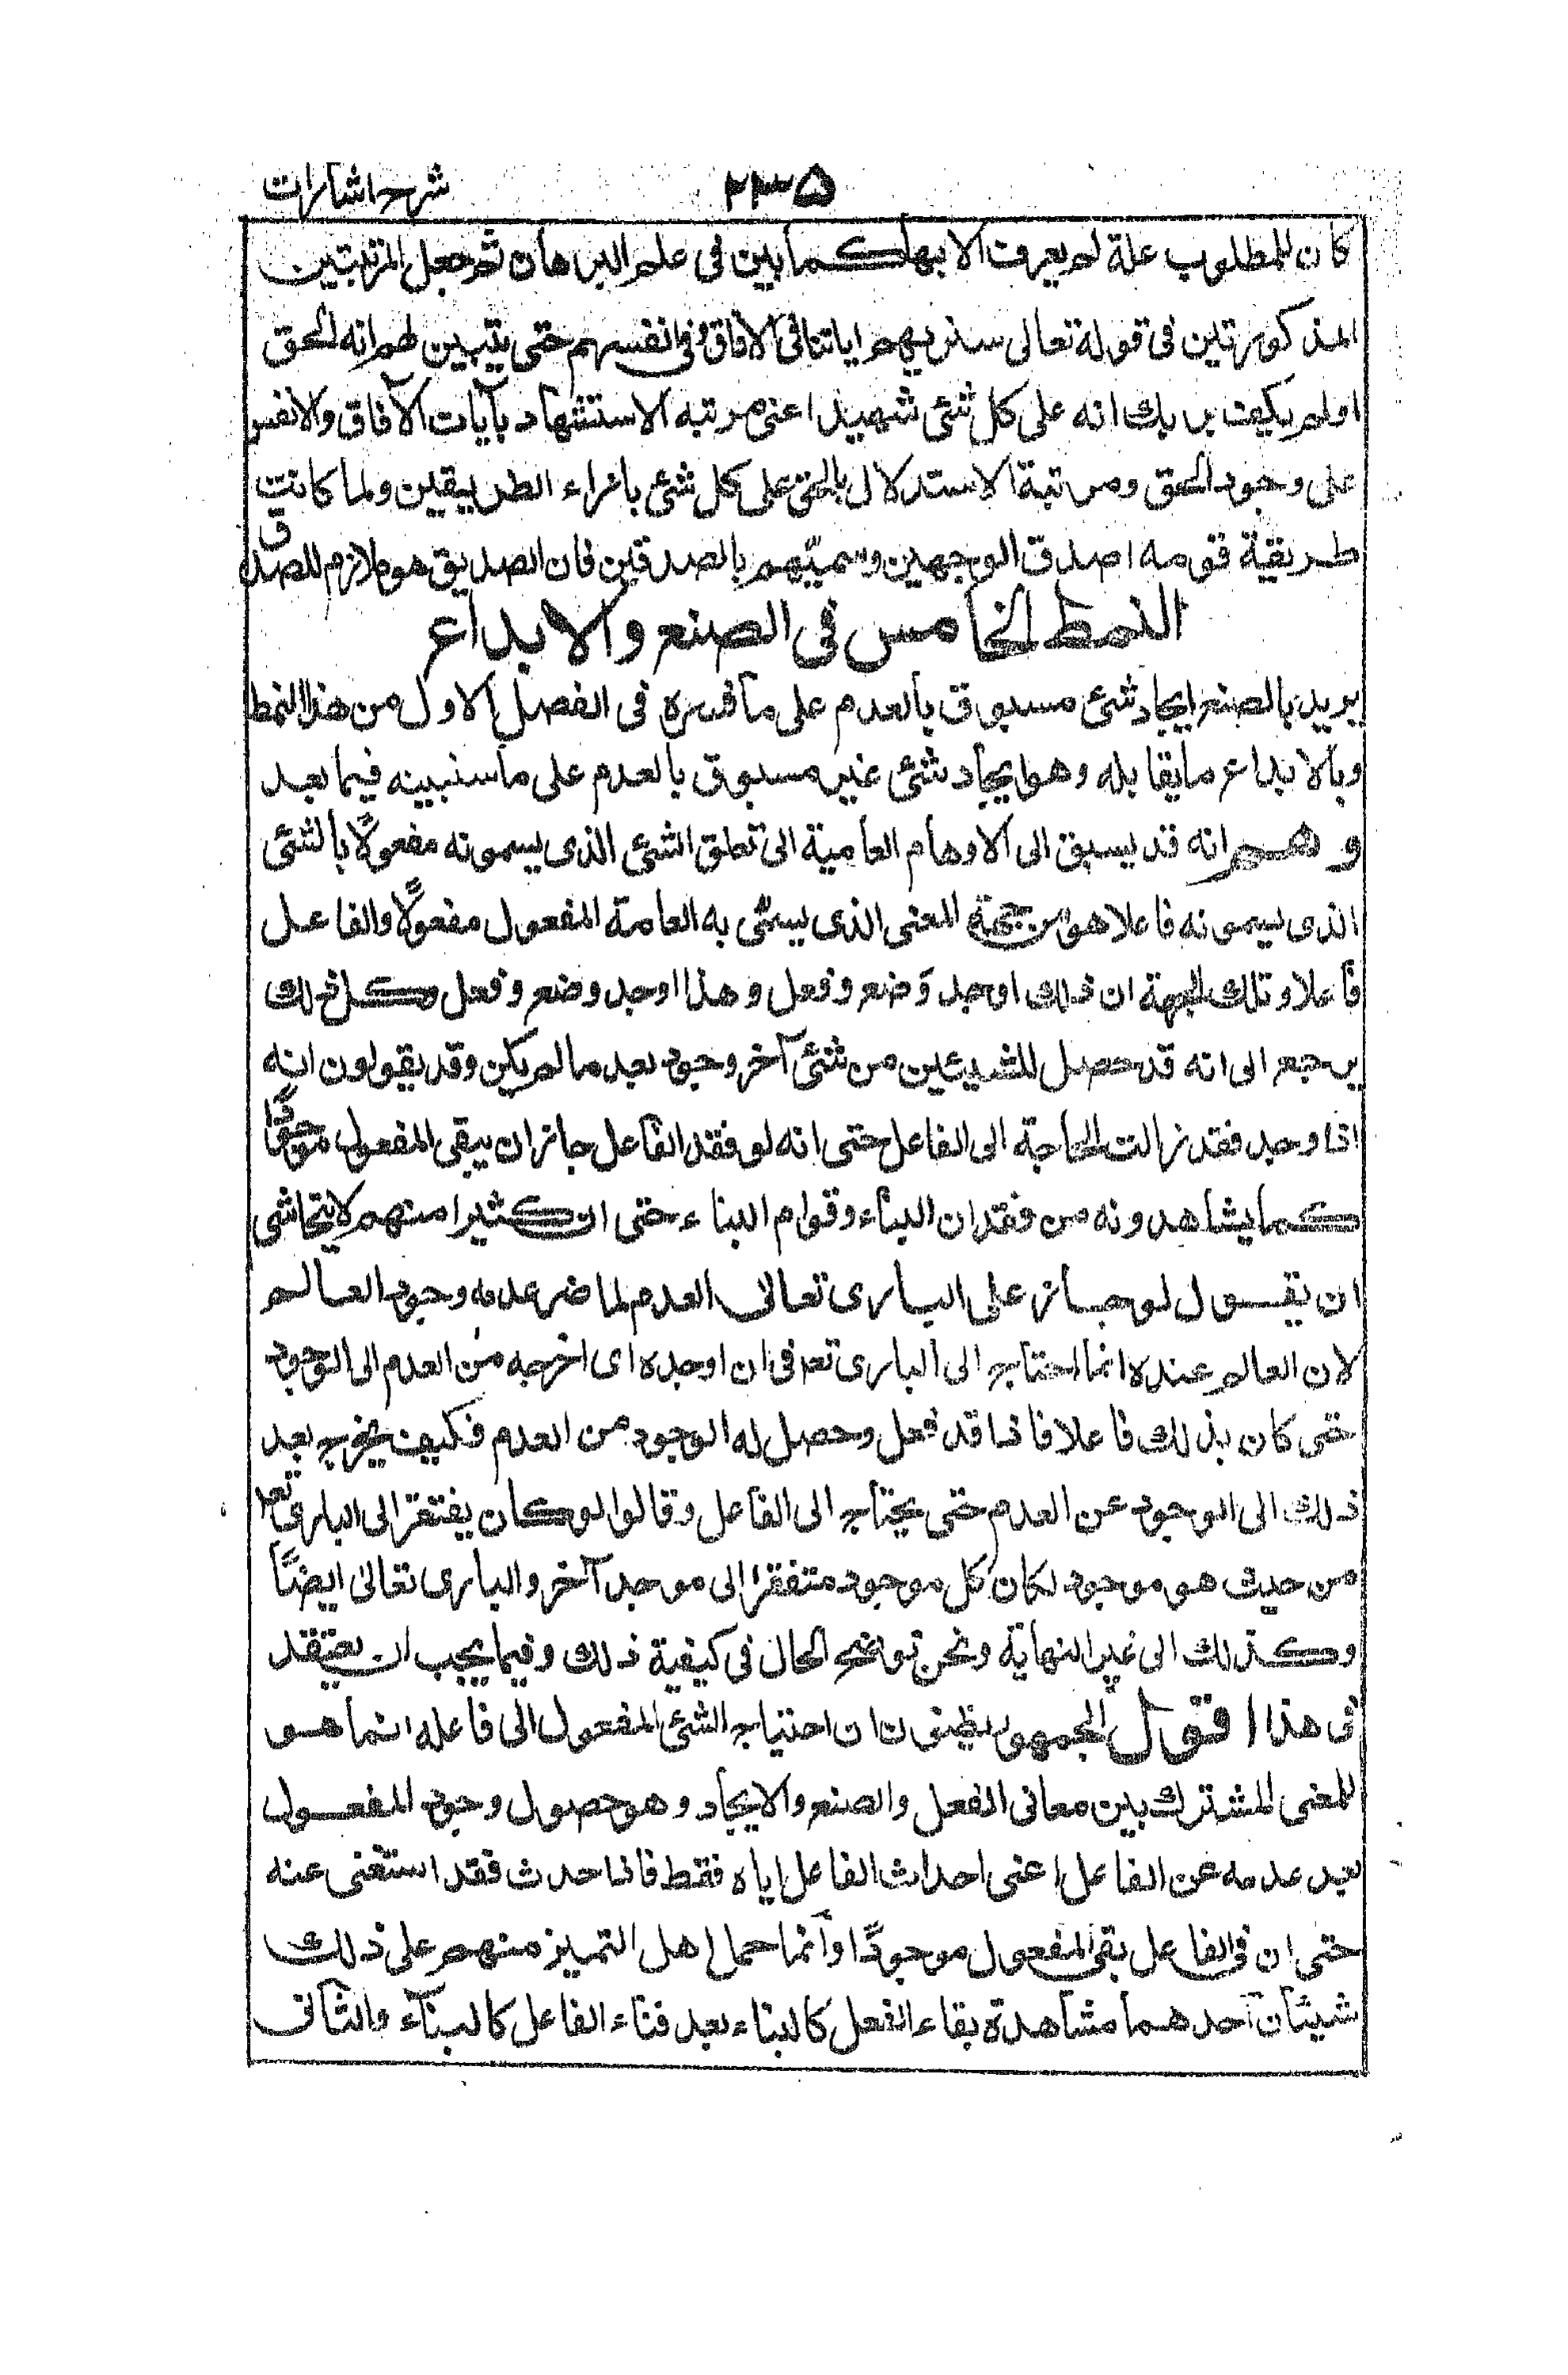 شرح اشارات ۲۳۵
كان للمطلوب علة لم يعرف الا بها كما بين فى علم البرهان ثم جعل المرتبتين
المذكورتين فى قوله تعالى سنريهم اياتنا فى الآفاق وفى انفسهم حتى يتبين لهم انه الحق
اولم يكف بربك انه على كل شئ شهيد اعنى مرتبه الاستشهاد بآيات الآفاق والانفس
على وجود الحق ومرتبة الاستدلال بالحق على كل شئ بازاء الطريقين ولما كانت
طريقة قومه اصدق الوجهين وسميّهم بالصدقين فان الصديق هو ملازم للصدق
النمط الخامس فى الصنع والابداع
يريد بالصنع ايجاد شئ مسبوق بالعدم على ما فسره فى الفصل الاول من هذا النمط
وبالابداع ما يقابله وهو ايجاد شئ غير مسبوق بالعدم على ما سنبينه فيما بعد
وهم انه قد يسبق الى الاوهام العامية الى تعلق الشئ الذى يسمونه مفعولاً بالشئ
الذى يسمونه فاعلا هو من جهة المعنى الذى يسمّى به العامة المفعول مفعولاً والفاعل
فاعلا وتلك الجهة ان ذلك اوجد وَصنع وفعل وهذا اوجد وصنع وفعل وكل ذلك
يرجع الى انه قد حصل للشيئين من شئ آخر وجود بعد ما لم يكن وقد يقولون انه
اذا وجد فقد زالت الحاجة الى الفاعل حتى انه لو فقد الفاعل جاز ان يبقى المفعول موجودًا
كما يشاهدونه من فقدان البناء وقوام البناء حتى ان كثيرا منهم لا يتحاشى
ان يقول لو جاز على البارى تعالى العدم لما ضر عدمه وجود العالم
لان العالم عنده انما احتاج الى البارى تع فى ان اوجده اى اخرجه من العدم الى الوجود
حتى كان بذلك فاعلا فاذا قد فعل وحصل له الوجود من العدم فكيف يخرج بعد
ذلك الى الوجود عن العدم حتى يحتاج الى الفاعل وقالوا لو كان يفتقر الى البارى تع
من حيث هو موجود لكان كل موجود متفقرا الى موجد آخر والبارى تعالى ايضًا
وكذلك الى غير النهاية ونحن نوضح الحال فى كيفية ذلك وفيما يجب ان يعتقد
فى هذا اقول الجمهور يظنون ان احتياج الشئ المفعول الى فاعله انما هو
للمعنى المشترك بين معانى الفعل والصنع والايجاد وهو حصول وجود المفعول
بعد عدمه عن الفاعل اعنى احداث الفاعل اياه فقط فاذا حدث فقد استغنى عنه
حتى ان فى الفاعل بقى المفعول موجودًا وانما حمل اهل التميز منهم على ذلك
شيئان احدهما مشاهدة بقاء الفعل كالبناء بعد فناء الفاعل كالبنآء والثانى